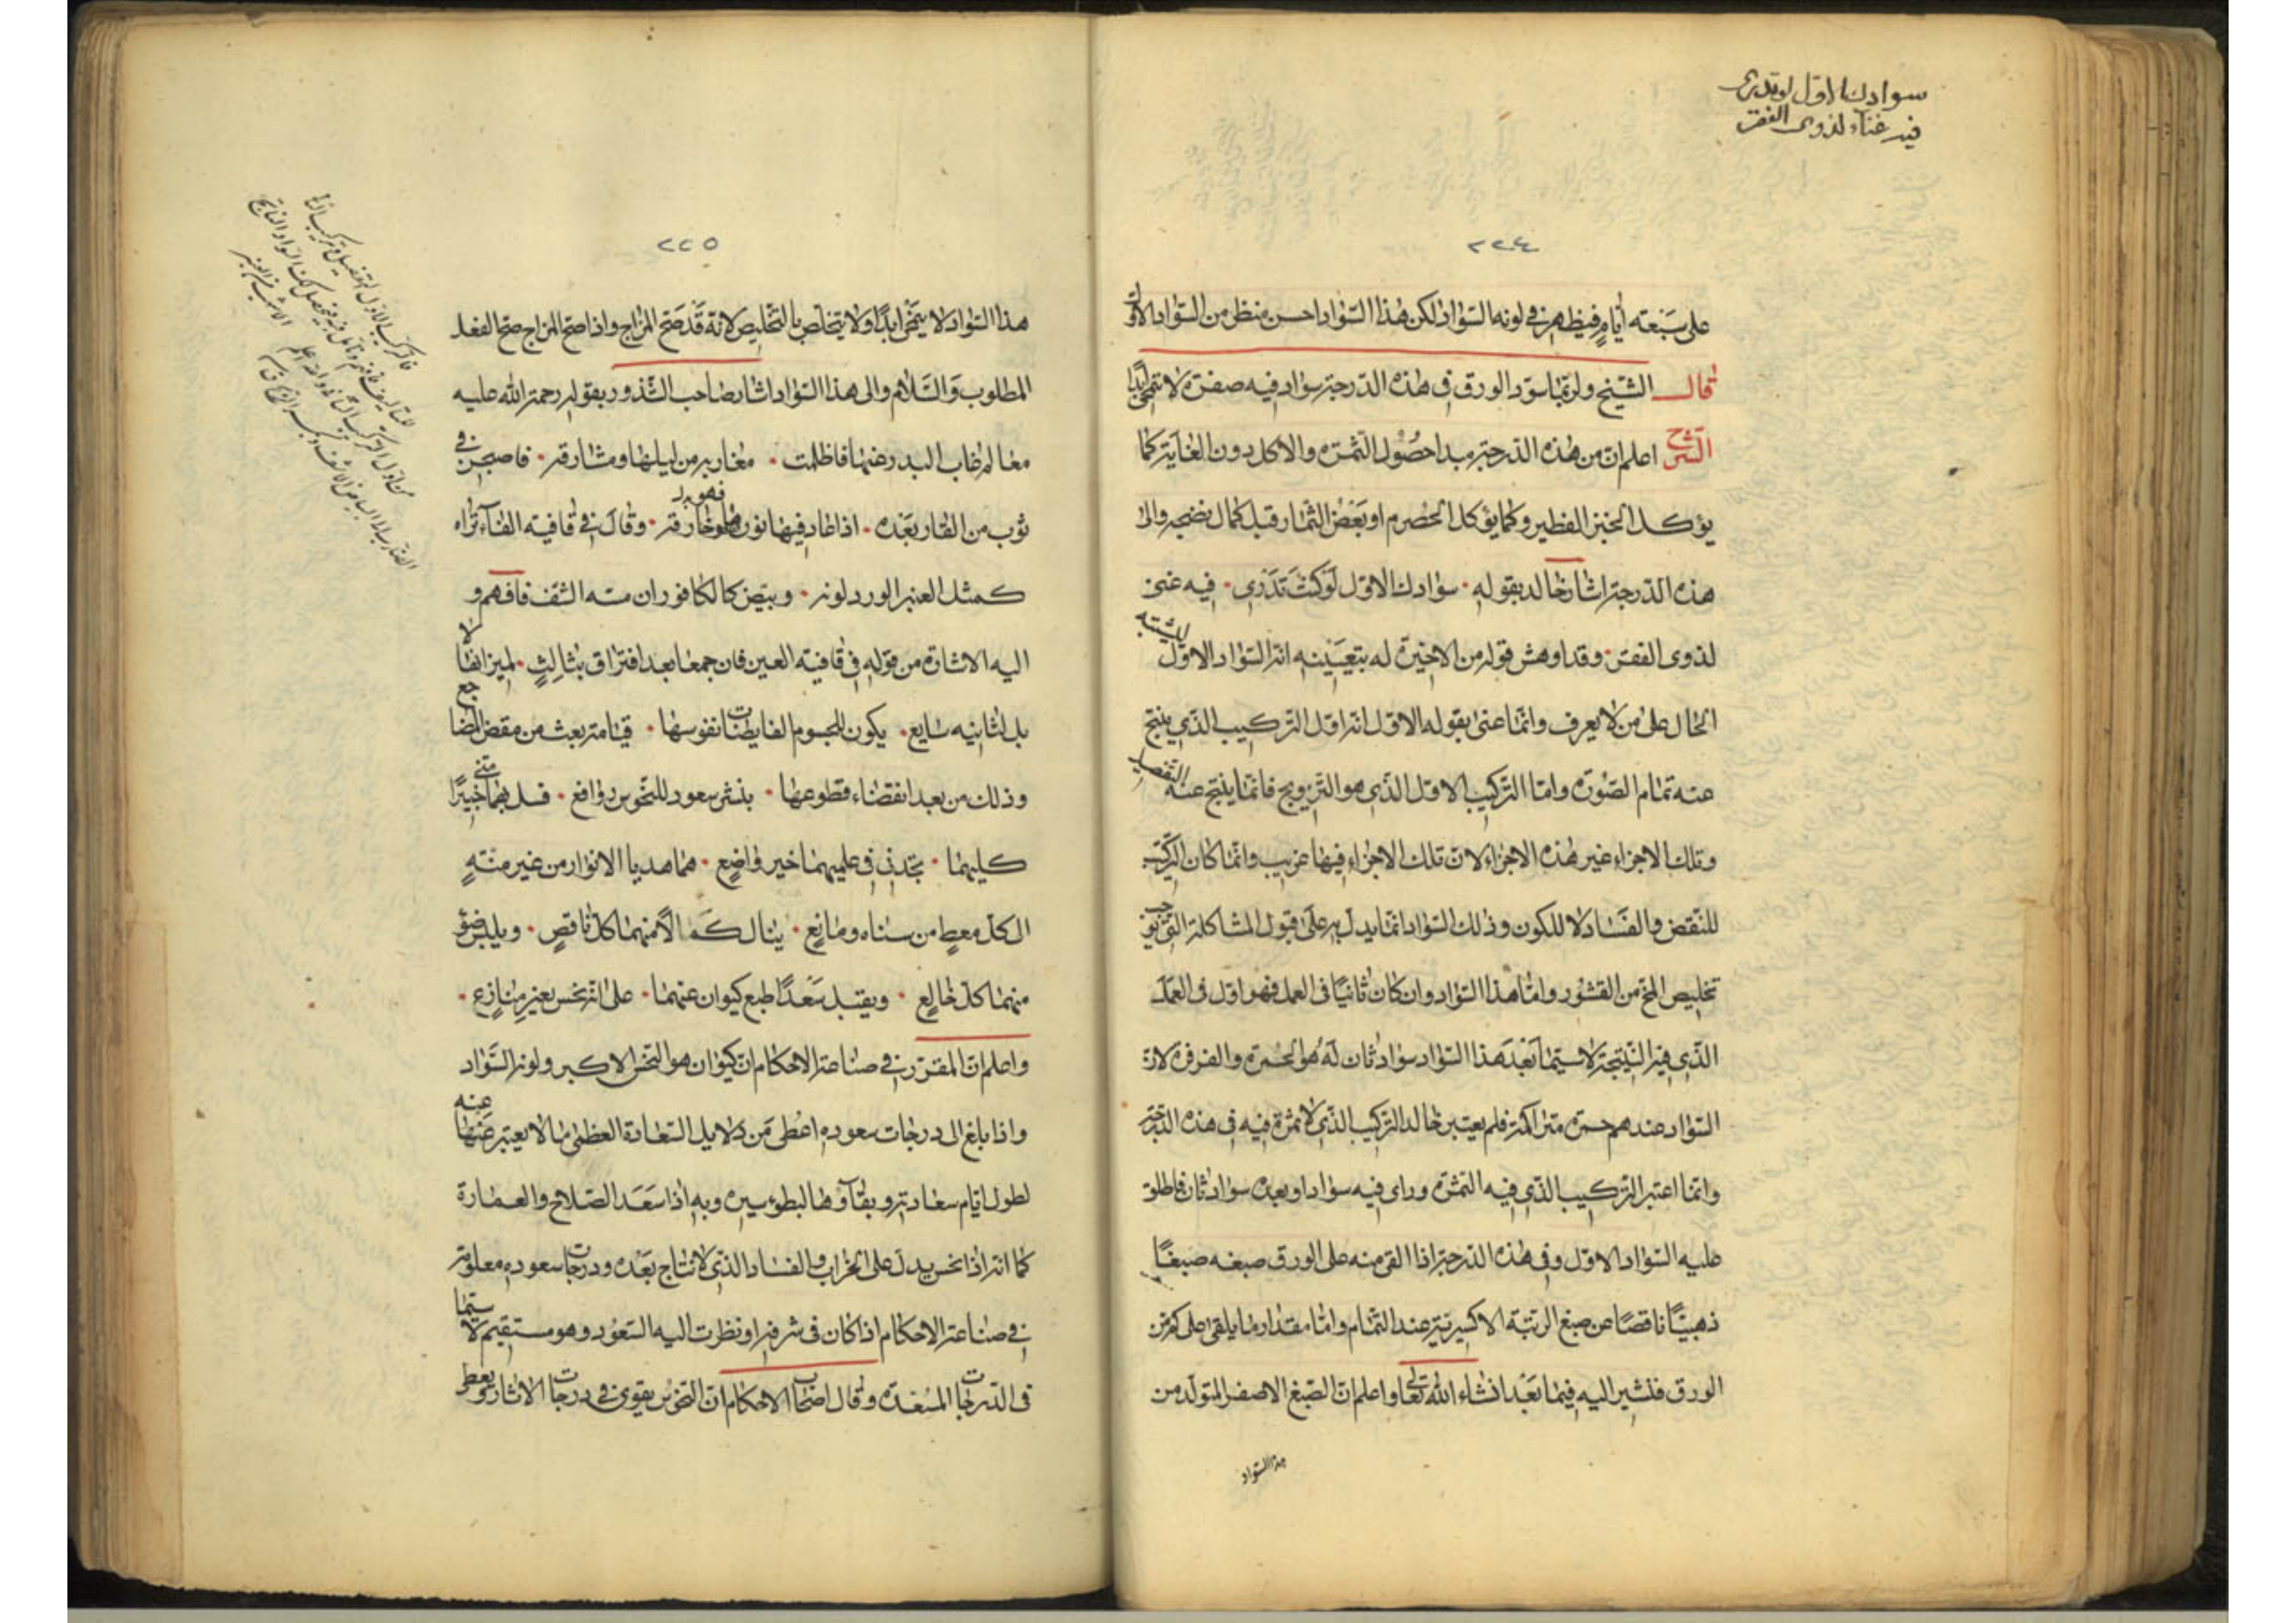 سوادك الاول لو تدرى
فيه غناء لذوى الفقر
٢٢٤
على سبعة أيام فيظهر فى لونه السواد لكن هذا السواد احسن منظر من السواد الاول
قال الشيخ ولربما سود الورق فى هذه الدرجة سواد فيه صفرة لا تنمحى ابدا
الشرح اعلم ان من هذه الدرجة مبدا حصول الثمرة والاكل دون الغاية كما
يؤكل الخبز الفطير وكما يؤكل الحصرم او بعض الثمار قبل كمال نضجه والى
هذه الدرجة اشار خالد بقوله · سوادك الاول لو كنت تدرى · فيه غنى
لذوى الفقر · وقد اوهش قوله من لا خبرة له بتعيينه انه السواد الاول ليشتبه
الحال على من لا يعرف وانما عنى بقوله الاول انه اول التركيب الذى ينتج
عنه تمام الصورة واما التركيب الاول الذى هو التزويج فانما ينتج عنه التفصيل
وتلك الاجزاء غير هذه الاجزاء لان تلك الاجزاء فيها غريب وانما كان التركيب
للنقض والفساد لا للكون وذلك السواد انما يدل به على قبول المشاكلة التى توجب
تخليص المخ من القشور واما هذا السواد وان كان ثانيا فى العمل فهو اول فى العمل
الذى فيه النتيجة لا سيما بعد هذا السواد سواد ثان له هو الحمرة والفرفرة لان
السواد عندهم حمرة متراكمة فلم يعتبر خالد التركيب الذى لا ثمرة فيه فى هذه الدرجة
وانما اعتبر التركيب الذى فيه الثمرة وراى فيه سوادا وبعده سواد ثان فاطلق
عليه السواد الاول وفى هذه الدرجة اذا القى منه على الورق صبغه صبغا
ذهبيا ناقصا عن صبغ الرتبة الاكسيرية عند التمام واما مقدار ما يلقى على كم من
الورق فنشير اليه فيما بعد انشاء الله تعالى واعلم ان الصبغ الاصفر المتولد من
هذا السواد
٢٢٥
هذا السواد لا ينمحى ابدا ولا يتخلص بالتخليص لانه قد صح المزاج واذا صح المزاج صح الفعل
المطلوب والسلام والى هذا السواد اشار صاحب الشذور بقوله رحمة الله عليه
معالم غاب البدر عنها فاظلمت · مغاربه من ليلها ومشارقه · فاصبحن فى
ثوب من القار بعده · اذا طار فيها نور فهو خارقه · وقال فى قافية الفاء تراه
كمثل العنبر الورد لونه · وبيض كالكافور ان مسه الشف فافهم و
اليه الاشارة من قوله فى قافية العين فان جمعا بعد افتراق بثالث · لميزانها لا
بل لثانيه شايع · يكون للجسوم الفايضات نفوسها · قيامة بعث من مقض المضاجع
وذلك من بعد انقضاء قطوعها · بنشر سعود للنحوس دوافع · فسل بهما منى خبيرا
كليهما · تجدنى فى علميهما خير واضع · هما هديا الانوار من غير منة
الى كل معط من سناه ومانع · ينال كمالا منهما كل ناقص · ويلبس ضوء
منهما كل خالع · ويقبل سعدا طبع كيوان عنهما · على انه نحس بغير منازع ·
واعلم ان المقرر فى صناعة الاحكام ان كيوان هو النحس الاكبر ولونه السواد
واذا بلغ الى درجات سعوده اعطى من دلايل السعادة العظمى ما لا يعتبر عنها عنه
لطول ايام سعادته وبقآوها لبطوء سيره وبه اذا سعد الصلاح والعمارة
كما انه اذا نحس يدل على الخراب والفساد الذى لا نتاج بعده ودرجات سعوده معلومة
فى صناعة الاحكام اذا كان فى شرفه او نظرت اليه السعود وهو مستقيم لا سيما
فى الدرجات المسعدة وقال اصحاب الاحكام ان النحوس يقوى فى درجات الاثار ويعطى